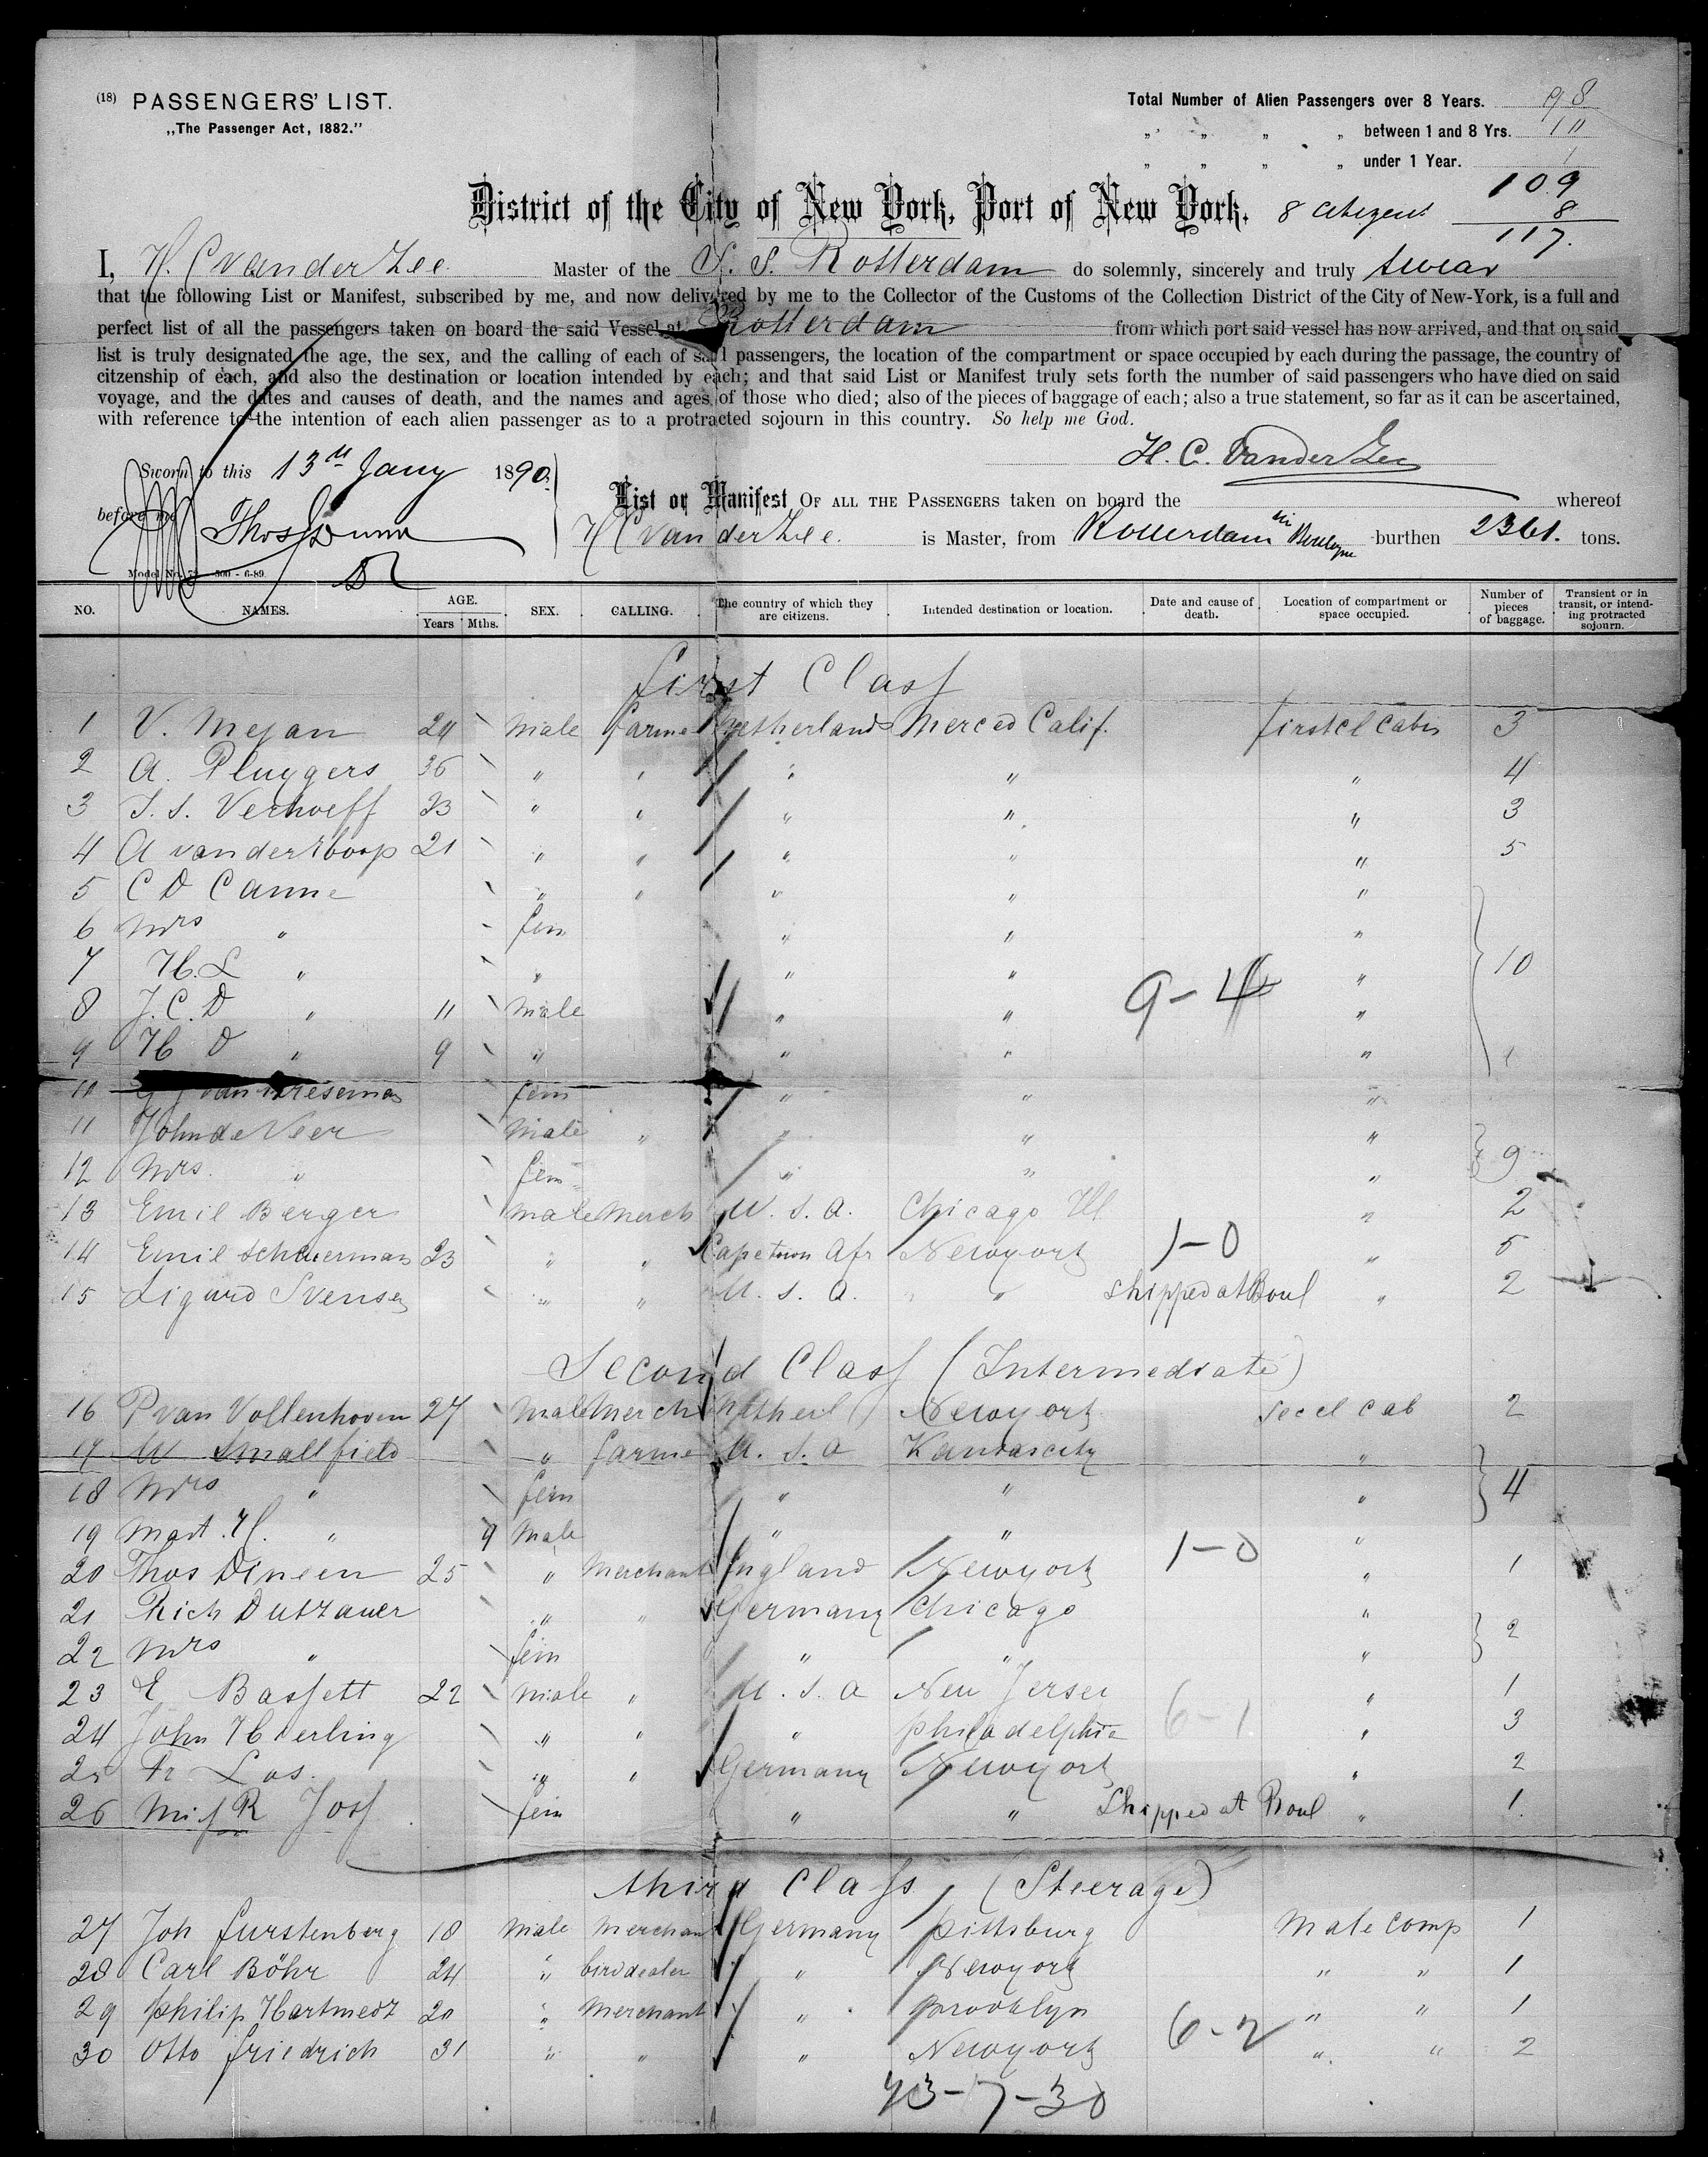 (18) PASSENGERS' LIST.
„The Passenger Act, 1882."
Total Number of Alien Passengers over 8 Years. 98
„ „ „ „ between 1 and 8 Yrs. 10
„ „ „ „ under 1 Year. 1
109
District of the City of New York, Port of New York. 8 citizens 8
117.
I, H. C van der Zee Master of the S. S. Rotterdam do solemnly, sincerely and truly swear
that the following List or Manifest, subscribed by me, and now delivered by me to the Collector of the Customs of the Collection District of the City of New-York, is a full and
perfect list of all the passengers taken on board the said Vessel at Rotterdam from which port said vessel has now arrived, and that on said
list is truly designated the age, the sex, and the calling of each of said passengers, the location of the compartment or space occupied by each during the passage, the country of
citzenship of each, and also the destination or location intended by each; and that said List or Manifest truly sets forth the number of said passengers who have died on said
voyage, and the dates and causes of death, and the names and ages of those who died; also of the pieces of baggage of each; also a true statement, so far as it can be ascertained,
with reference to the intention of each alien passenger as to a protracted sojourn in this country. So help me God.
H. C. Van der Zee
Sworn to this 13th Jany 1890
List or Manifest OF ALL THE PASSENGERS taken on board the whereof
before me Thos Dunn
H C van der Zee. is Master, from Rotterdam via Boulogne burthen 2361. tons.
Model No. 73 - 500 - 6-89.
NO. NAMES. AGE. Years Mths. SEX. CALLING. The country of which they are citizens. Intended destination or location. Date and cause of death. Location of compartment or space occupied. Number of pieces of baggage. Transient or in transit, or intending protracted sojourn.
first Class
1 V. Mejan 24 male farmer Netherlands Merced Calif. first cl cabin 3
2 A. Pluygers 36 „ „ „ „ „ 4
3 J. S. Verhoeff 23 „ „ „ „ „ 3
4 A van der 21 „ „ „ „ „ 5
5 C D Canne „ „ „ „ „
6 Mrs „ fem „ „ „
7 H. L „ „ „ „ „ 10
8 J. C. D „ 11 male „ „ 9-4 „
9 H D „ 9 „ „ „ „
10 fem „ „ „
11 John de Veer male „ „ „ „ 9
12 Mrs. „ fem „ „ „
13 Emil Berger male Merch U. S. A. Chicago Ill „ 2
14 Emil Schuerman 23 „ „ Capetown Afr Newyork 1-0 „ 5
15 Sigurd Svensen „ „ U. S. A. „ shipped at Boul „ 2
Second Class (Intermediate)
16 P van Vollenhoven 27 Male Merch Netherl Newyork sec cl cab 2
17 W Smallfield „ farmer U. S. A Kansascity „
18 Mrs „ fem „ „ „ 4
19 Mart. H. „ 9 Male „ „ „
20 Thos Dineen 25 „ Merchant England Newyork 1-0 „ 1
21 Rich Dutzauer „ „ Germany Chicago „
22 Mrs „ fem „ „ „ 2
23 E Bassett 22 male „ U. S. A New Jersei „ 1
24 John Hierling „ „ „ philadelphia 6-1 „ 3
25 Fr Los. „ „ Germany Newyork „ 2
26 Miss R Joss fem „ „ Shipped at Boul „ 1.
third Class (Steerage)
27 Joh furstenberg 18 male merchant Germany pittsburg male comp 1
28 Carl Böhr 24 „ birddealer „ Newyork „ „ 1
29 philip Hartmedz 20 „ Merchant „ Brooklyn „ „ 1
30 Otto friedrich 31 „ „ „ Newyork 6-2 „ „ 2
23-7-30